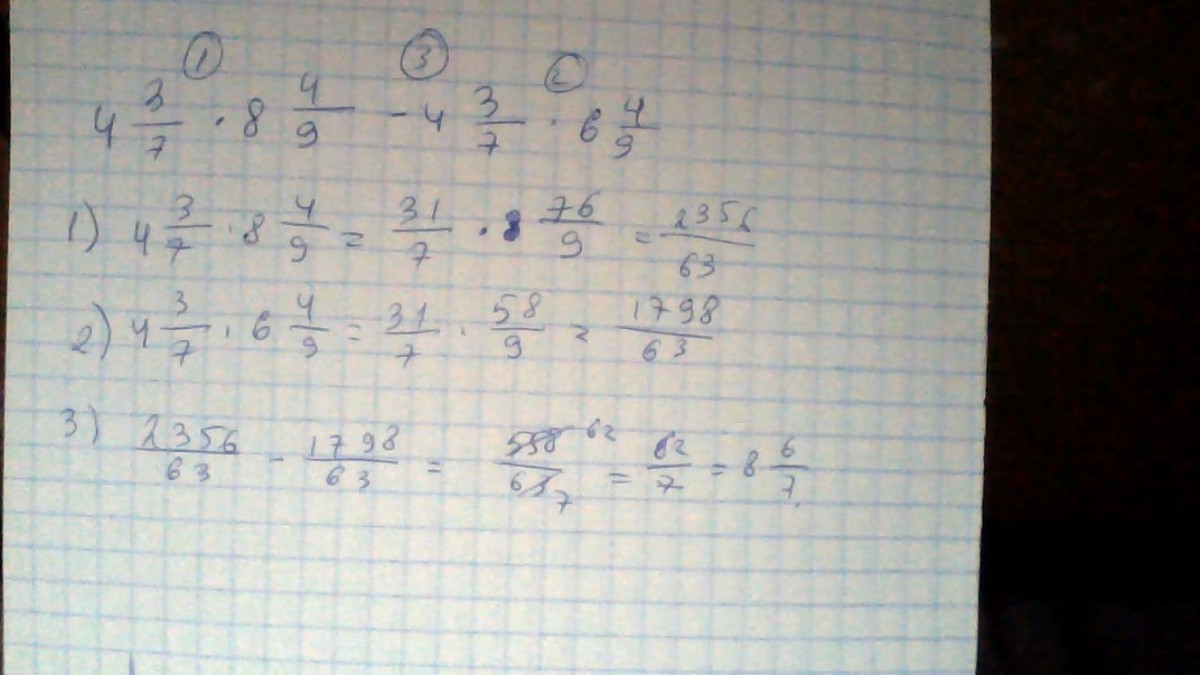 ① ③ ②
4 3/7 · 8 4/9 - 4 3/7 · 6 4/9
1) 4 3/7 · 8 4/9 = 31/7 · 76/9 = 2356/63
2) 4 3/7 · 6 4/9 = 31/7 · 58/9 = 1798/63
3) 2356/63 - 1798/63 = 558 62/63 7 = 62/7 = 8 6/7